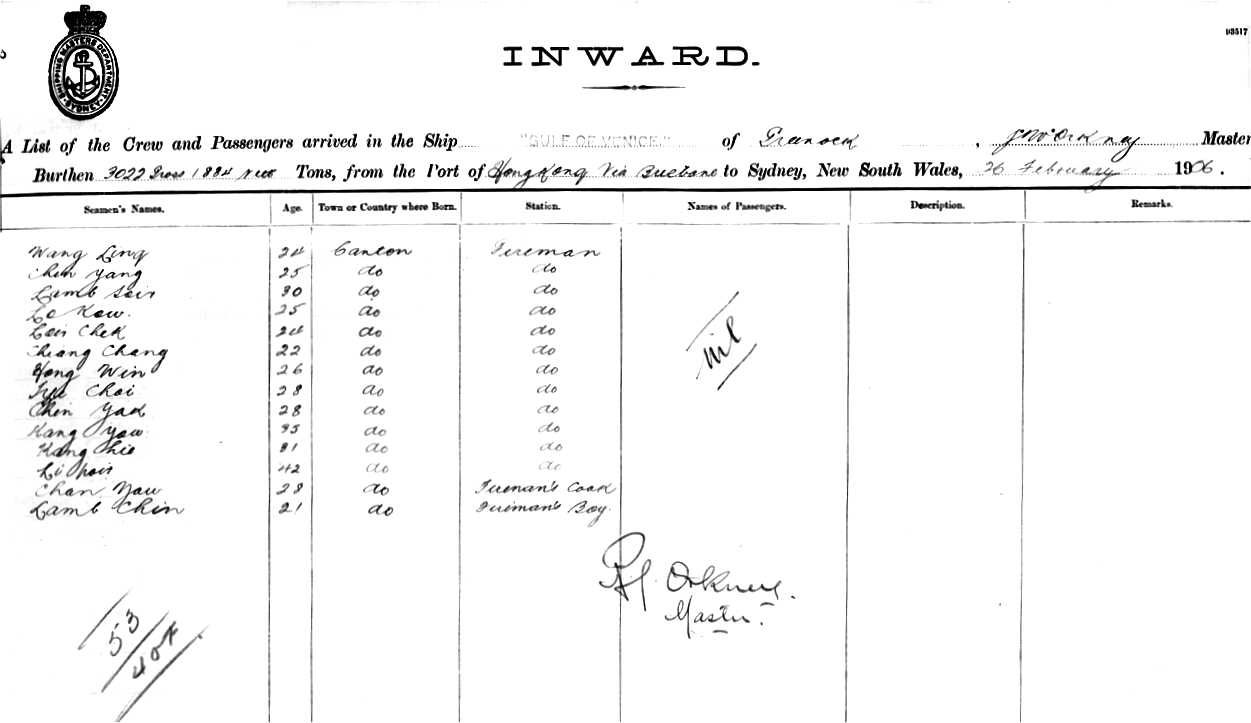 SHIPPING MASTERS DEPARTMENT
SYDNEY
93517
INWARD.
A List of the Crew and Passengers arrived in the Ship "GULF OF VENICE," of Grenock, Orkney Master
Burthen 3022 Gross 1884 Nett Tons, from the Port of Hong Kong Via Brisbane to Sydney, New South Wales, 26 February 1906.
Seamen's Names. Age. Town or Country where Born. Station. Names of Passengers. Description. Remarks.
Wang Ling 24 Canton Fireman
Chen Yang 25 do do
Lamb 30 do do
Lo Kow. 25 do do
Chek 24 do do
Cheang Chang 22 do do
Hong Win 26 do do
Choi 28 do do
Chin Yak 28 do do
Kang Yow 35 do do
Kang 31 do do
Li 42 do do
Chan Yau 28 do Fireman's Cook
Lamb Chin 21 do Fireman's Boy.
nil
Orkney.
Master.
53